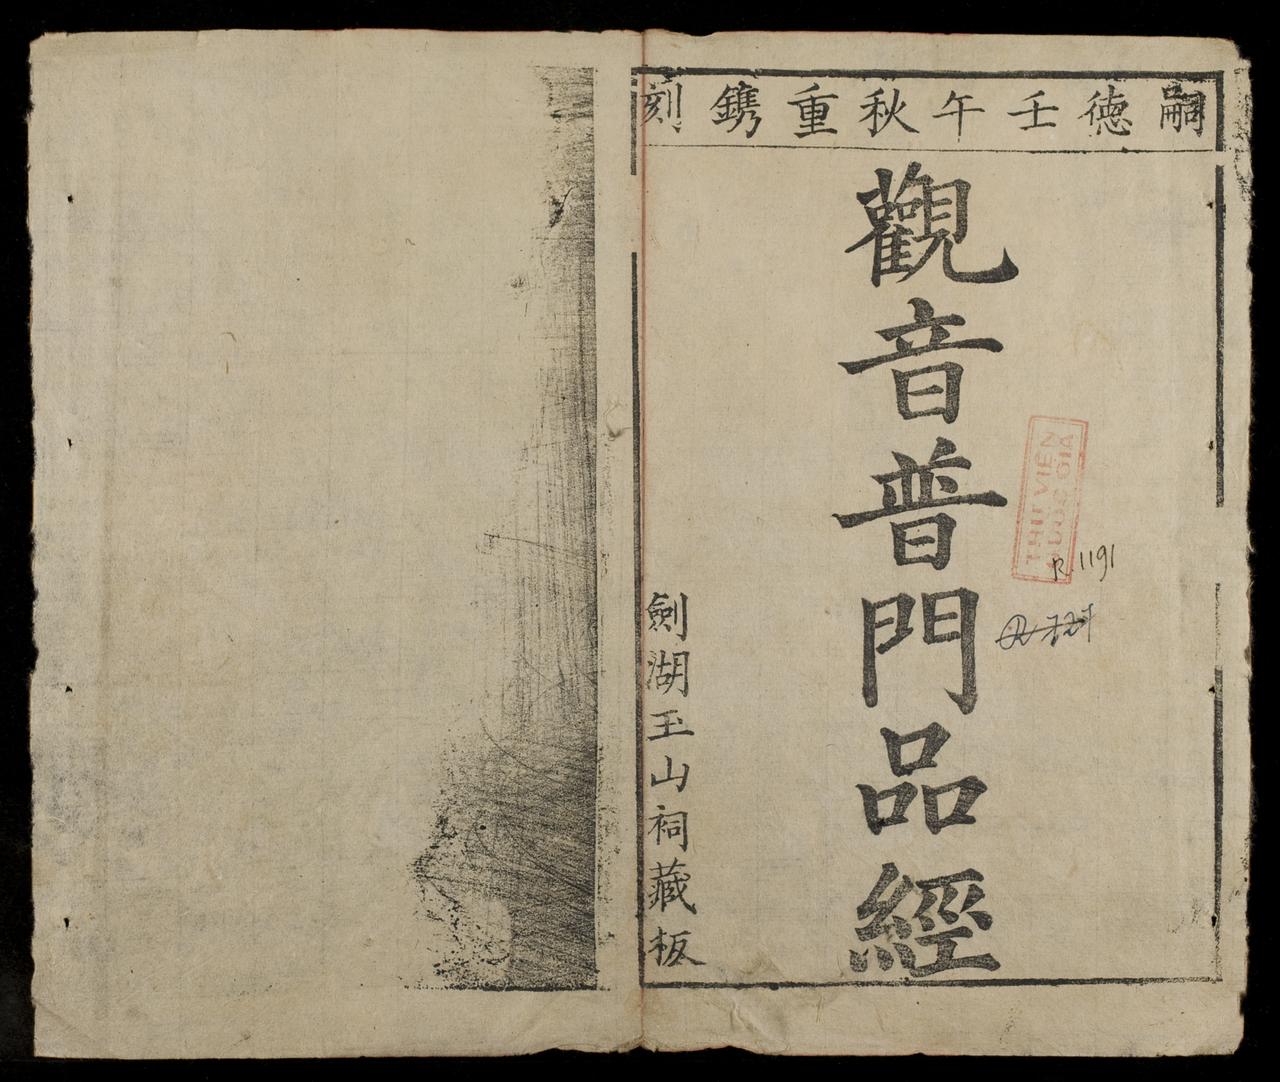 嗣德壬午秋重鐫刻
觀音普門品經
劍湖玉山祠藏板
THƯ VIỆN
QUỐC GIA
R.1191